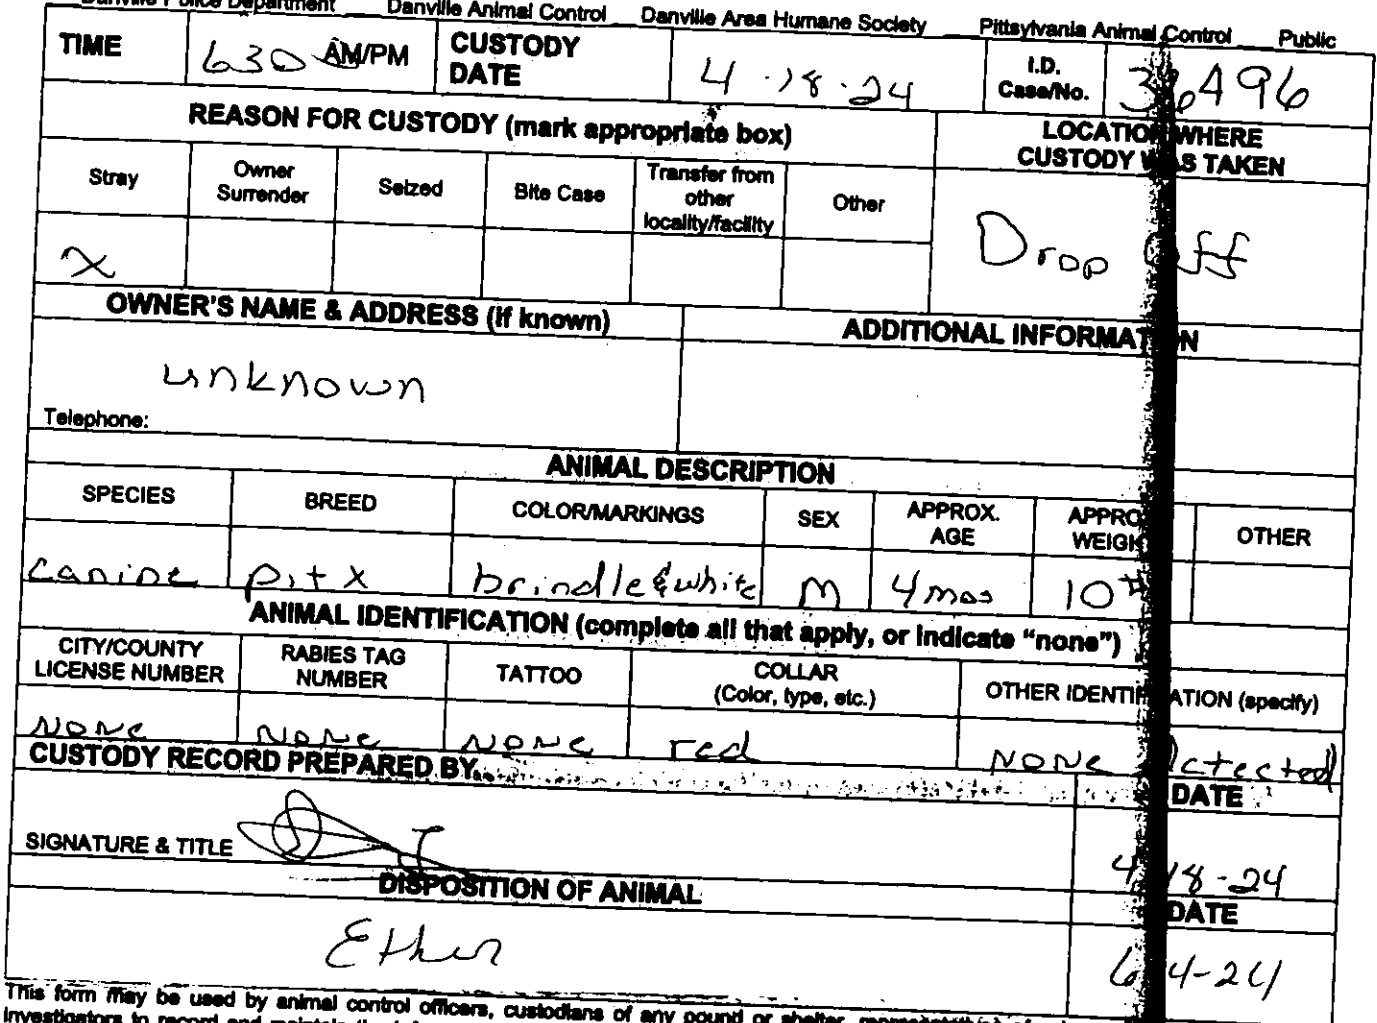 Danville Police Department ___ Danville Animal Control ___ Danville Area Humane Society ___ Pittsylvania Animal Control ___ Public
TIME 630 AM/PM CUSTODY DATE 4-18-24 I.D. Case/No. 36496
REASON FOR CUSTODY (mark appropriate box) LOCATION WHERE CUSTODY WAS TAKEN
Stray Owner Surrender Seized Bite Case Transfer from other locality/facility Other
X Drop Off
OWNER'S NAME & ADDRESS (if known) ADDITIONAL INFORMATION
unknown
Telephone:
ANIMAL DESCRIPTION
SPECIES BREED COLOR/MARKINGS SEX APPROX. AGE APPROX. WEIGHT OTHER
canine pit x brindle & white M 4 mos 10#
ANIMAL IDENTIFICATION (complete all that apply, or indicate “none”)
CITY/COUNTY LICENSE NUMBER RABIES TAG NUMBER TATTOO COLLAR (Color, type, etc.) OTHER IDENTIFICATION (specify)
None None None red None detected
CUSTODY RECORD PREPARED BY DATE
SIGNATURE & TITLE 4-18-24
DISPOSITION OF ANIMAL DATE
6-4-24
This form may be used by animal control officers, custodians of any pound or shelter,
investigators to record and